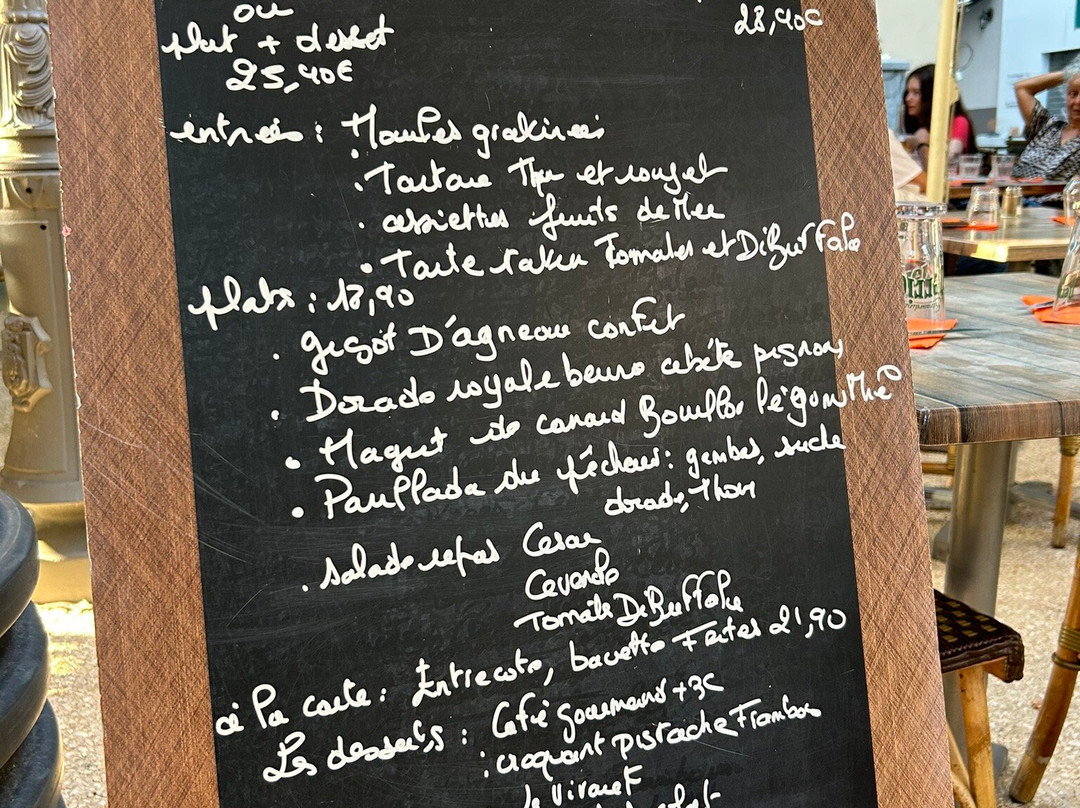 ou
plat + dessert
25,90€
28,90€
entrées : Moules gratinées
. Tartare Thon et rouget
. assiettes fruits de Mer
. Tarte Tatin Tomates et Di Buffala
plats : 18,90
. gigot D'agneau confit
. Dorade royale beurre pignons
. Magret de canard Bouillon légume Thé
. Parillada du pêcheur : gambas, seiche
dorade, Thon
. salade repas Cesar
Cevenole
Tomate Di Buffala
à la carte : Entrecote, bavette Frites 21,90
Les desserts : Café gourmand + 3€
: croquant pistache Framboise